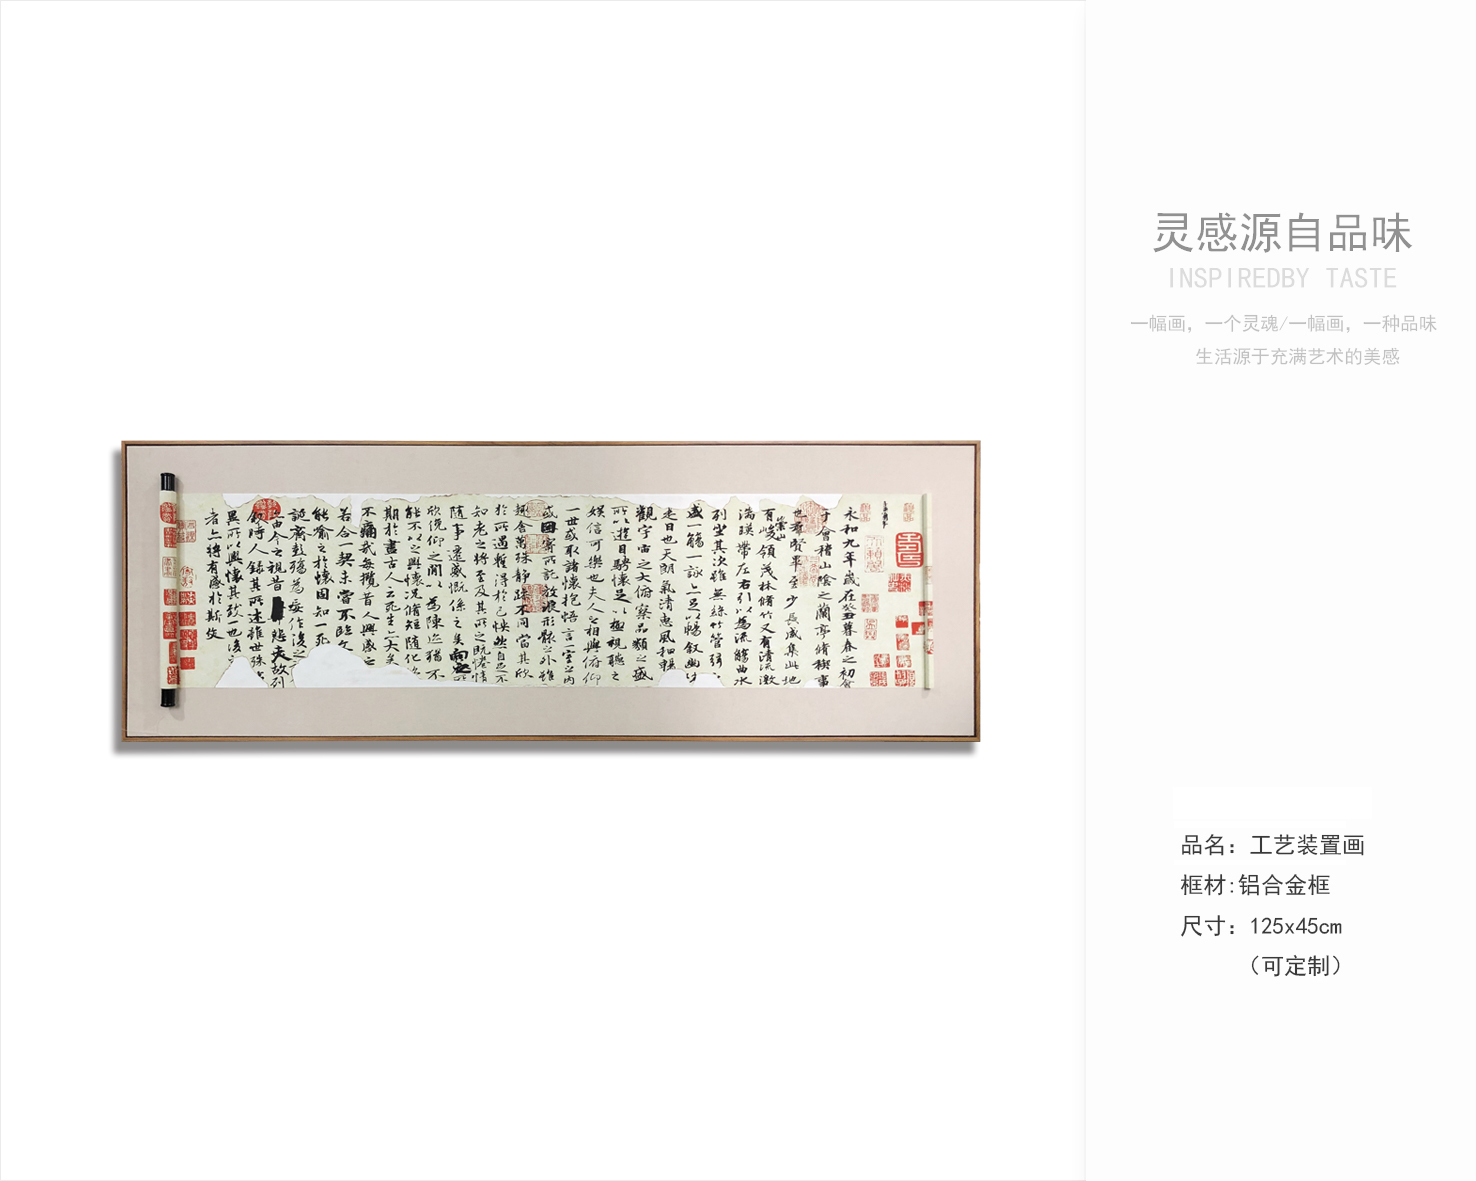 永和九年歲在癸丑暮春之初會
于會稽山陰之蘭亭脩稧事
也羣賢畢至少長咸集此地
有崇山峻領茂林脩竹又有清流激
湍暎帶左右引以為流觴曲水
列坐其次雖無絲竹管弦
盛一觴一詠亦足以暢叙幽
是日也天朗氣清惠風和暢
觀宇宙之大俯察品類之盛
所以遊目騁懷足以極視聽之
娛信可樂也夫人之相與俯仰
一世或取諸懷抱悟言一室之內
或因寄所託放浪形骸之外雖
趣舍萬殊靜躁不同當其欣
於所遇蹔得於己怏然自足不
知老之將至及其所之既惓情
隨事遷感慨係之矣向之
欣俛仰之閒以為陳迹猶不
能不以之興懷況脩短隨化
期於盡古人云死生亦大矣
不痛哉每攬昔人興感之
若合一契未嘗不臨文
能喻之於懷固知一死
誕齊彭殤為妄作後之
由今之視昔悲夫故列
叙時人錄其所述雖世殊
異所以興懷其致一也後
者亦將有感於斯文
灵感源自品味
INSPIREDBY TASTE
一幅画，一个灵魂/一幅画，一种品味
生活源于充满艺术的美感
品名：工艺装置画
框材:铝合金框
尺寸：125x45cm
（可定制）